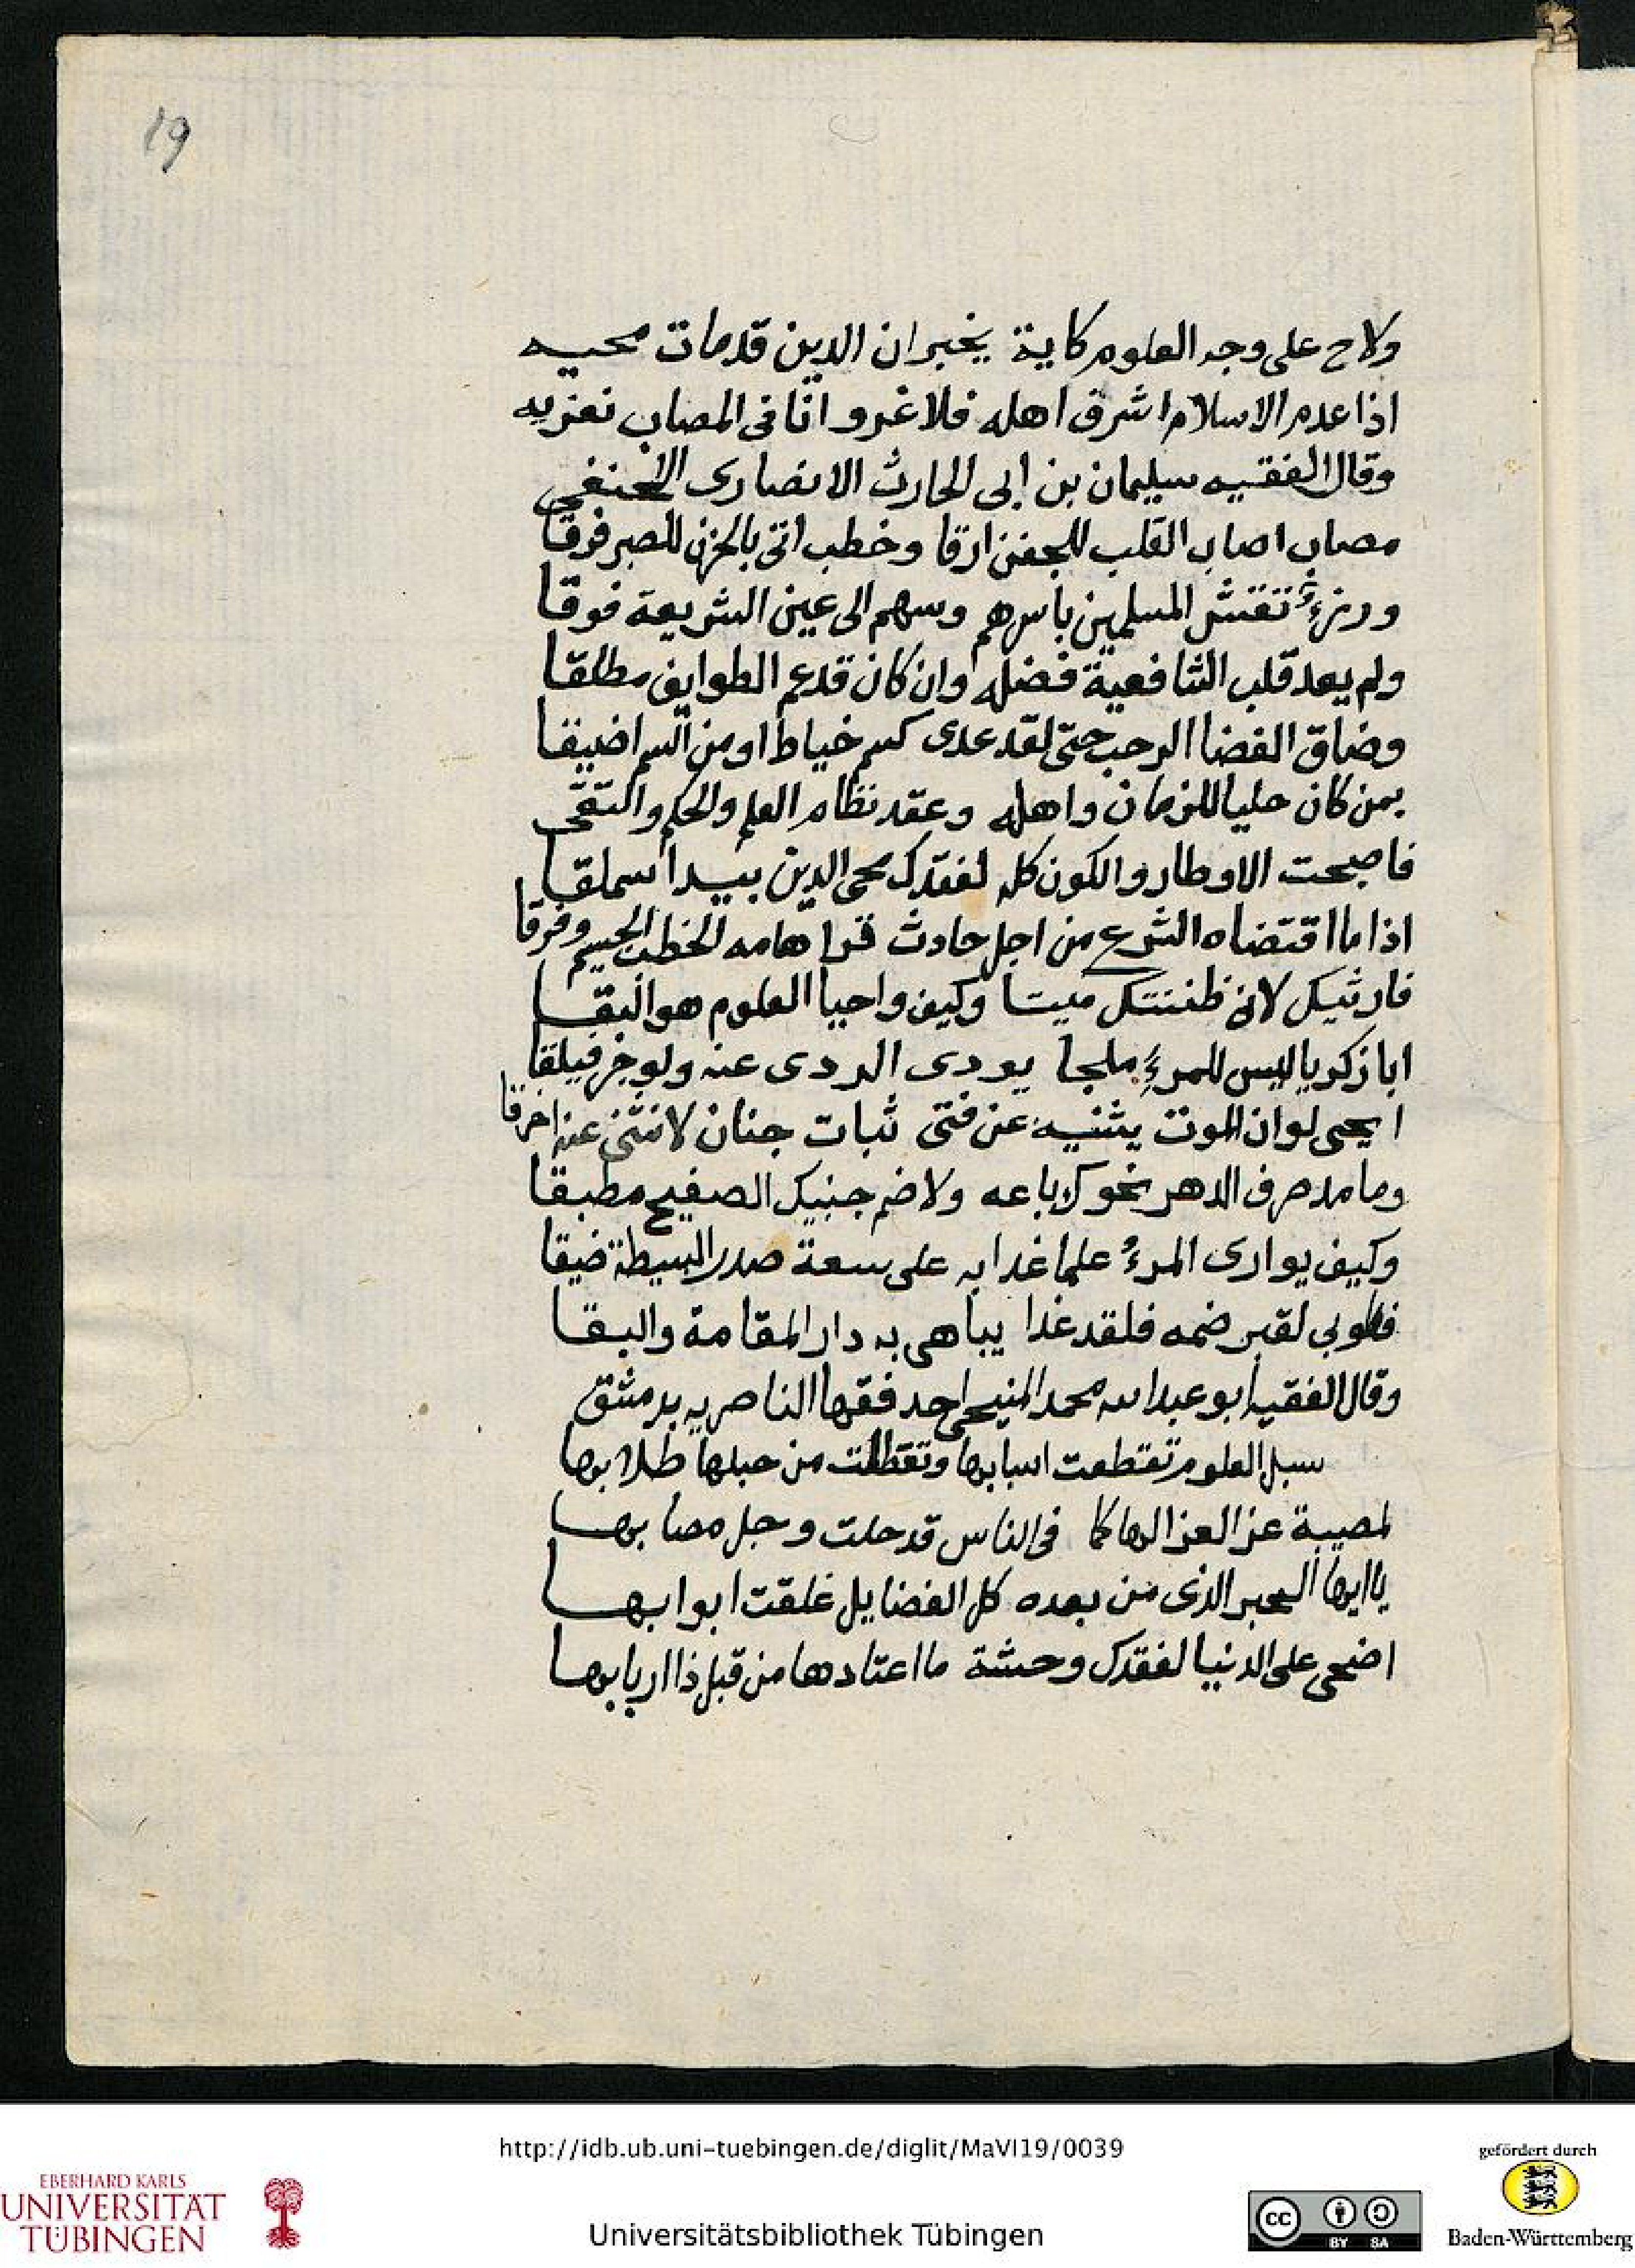 19
ولاح على وجه العلوم كاية يخبر ان الدين قد مات محييه
اذا عدم الاسلام اشرف اهله فلا غرو انا فى المصاب نعزيه
وقال الفقيه سليمان بن ابى الحارث الانصارى الحنفى
مصاب اصاب القلب للجفن ارقا وخطب اتى بالحزن للصبر فرقا
ورزءٌ تفشى المسلمين باسرهم وسهم الى عين الشريعة فوقا
ولم يعد قلب الشافعية فضله وان كان قد عم الطوايف مطلقا
وضاق الفضا الرحب حتى لقد غدى كسم خياط او من السم اضيقا
بمن كان حليا للزمان واهله وعقد نظام العلم والحكم والتقى
فاصبحت الاوطار والكون كله لفقدك محى الدين بيدا سملقا
اذا ما اقتضاه الشرع من اجل حادث قرا هامه الخطب الجسيم وفرقا
فارثيك لا انى ظننتك ميتا وكيف واحيا العلوم هو البقا
ابا زكريا ليس للمرءِ ملجا يودى الردى عنه ولو جر فيلقا
ايحيى لو ان الموت يثنيه عن فتى ثبات جنان لانثنى عنه اخرقا
وما مد صرف الدهر نحوك باعه ولا ضم جنبيك الصفيح مطبقا
وكيف يوارى المرءُ علما غدا به على سعة صدر البسيطة ضيقا
فطوبى لقبر ضمه فلقد غدا يباهى به دار المقامة والبقا
وقال الفقيه ابو عبد الله محمد المنيحى احد فقها الناصريه بدمشق
سبل العلوم تقطعت اسبابها وتعطلت من حبلها طلابها
لمصيبة عز العزا لها كما فى الناس قد حلت وجل مصابها
يا ايها الحبر الذى من بعده كل الفضايل غلقت ابوابها
اضحى على الدنيا لفقدك وحشة ما اعتادها من قبل ذا اربابها
http://idb.ub.uni-tuebingen.de/diglit/MaVI19/0039
Universitätsbibliothek Tübingen
EBERHARD KARLS
UNIVERSITÄT
TÜBINGEN
cc BY SA
gefördert durch
Baden-Württemberg